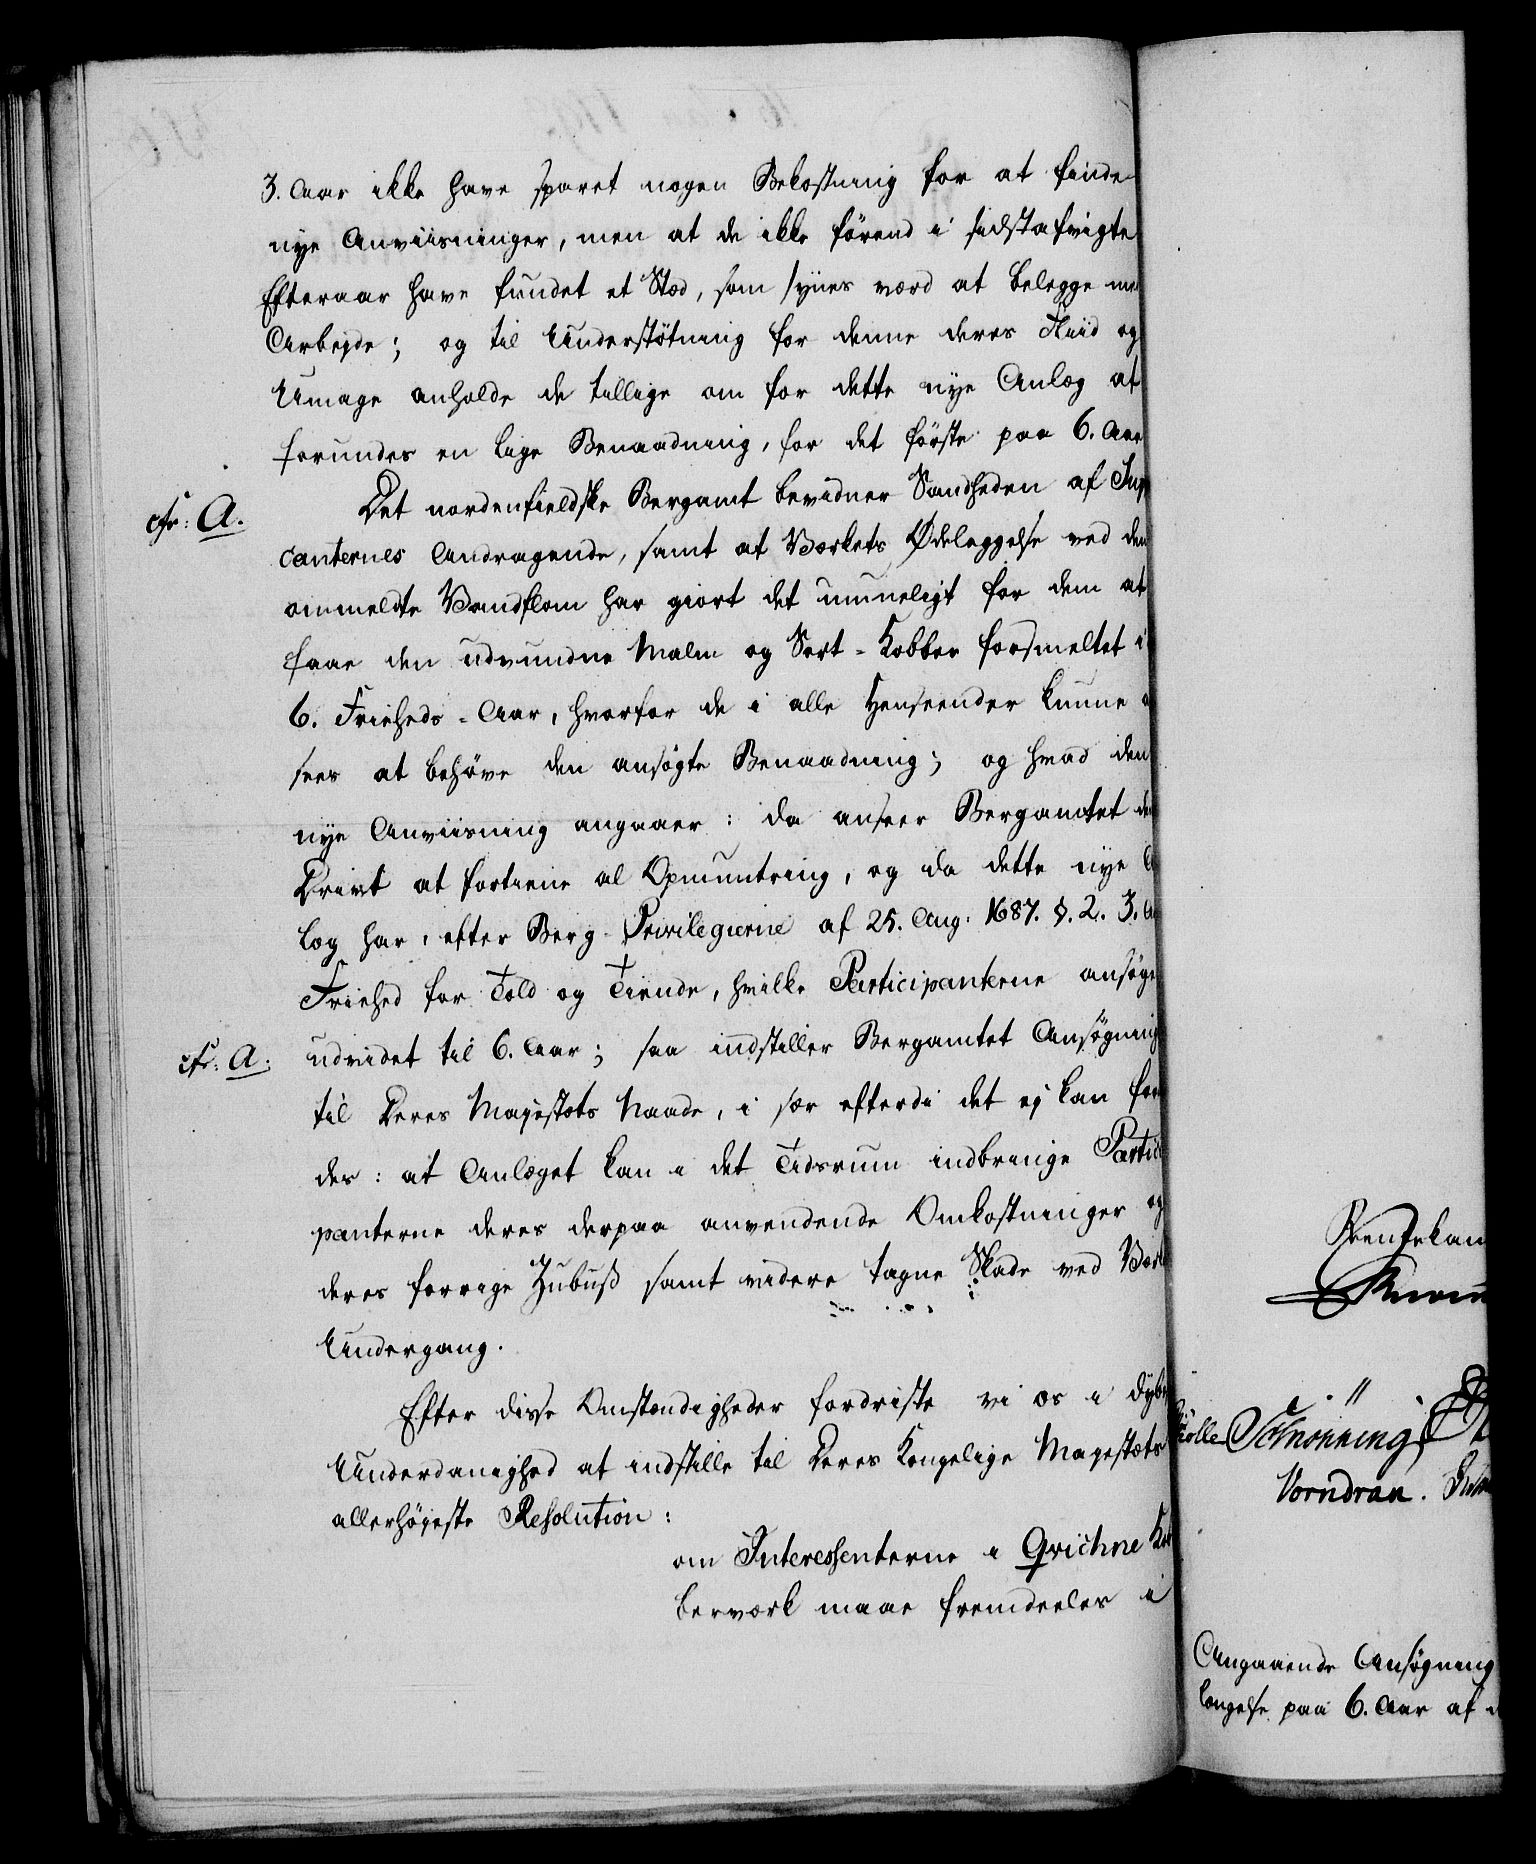 3. Aar ikke have sparet nogen Bekostning for at finde
nye Anviisninger, men at de ikke förend i sidstafvigte
Efteraar have fundet et Stæd, som synes værd at belegge me
Arbejde; og til Understötning for denne deres Fliid og
Umage anholde de tillige om for dette nye Anlæg at
forundes en lige Benaadning, for det förste paa 6. Aar
cfr: A.
Det nordenfieldske Bergamt bevidner Sandheden af Sup
canternes Andragende, samt at Værkets Ödeleggelse ved den
ommeldte Vandflom har giort det umueligt for dem at
faae den udvundne Malm og Sort-Kobber forsmeltet i
6. Friheds-Aar, hvorfor de i alle Henseender kunne a
sees at behöve den ansögte Benaadning; og hvad den
nye Anviisning angaaer: da anseer Bergamtet de
Drivt at fortiene al Opmuntring, og da dette nye A
læg har, efter Berg-Privilegierne af 25. Aug: 1687. §. 2. 3. A
Friehed for Told og Tiende, hvilke Participanterne ansöge
cfr: A.
udvidet til 6. Aar; saa indstiller Bergamtet Ansögning
til Deres Majestæts Naade, i sær efterdi det ej kan for
des: at Anlæget kan i det Tidsrum indbringe Partici
panterne deres derpaa anvendende Omkostninger og
deres forrige Zubuß samt videre tagne Skade ved Værk
Undergang.
Efter disse Omstændigheder fordriste vi os i dybe
Underdanighed at indstille til Deres Kongelige Majestæts
allerhöjeste Resolution:
om Interessenterne i Qvichne Kob
berværk maae fremdeeles i
Rentekam
Schiönning
Vorndran.
Angaaende Ansögning
længelse paa 6. Aar af